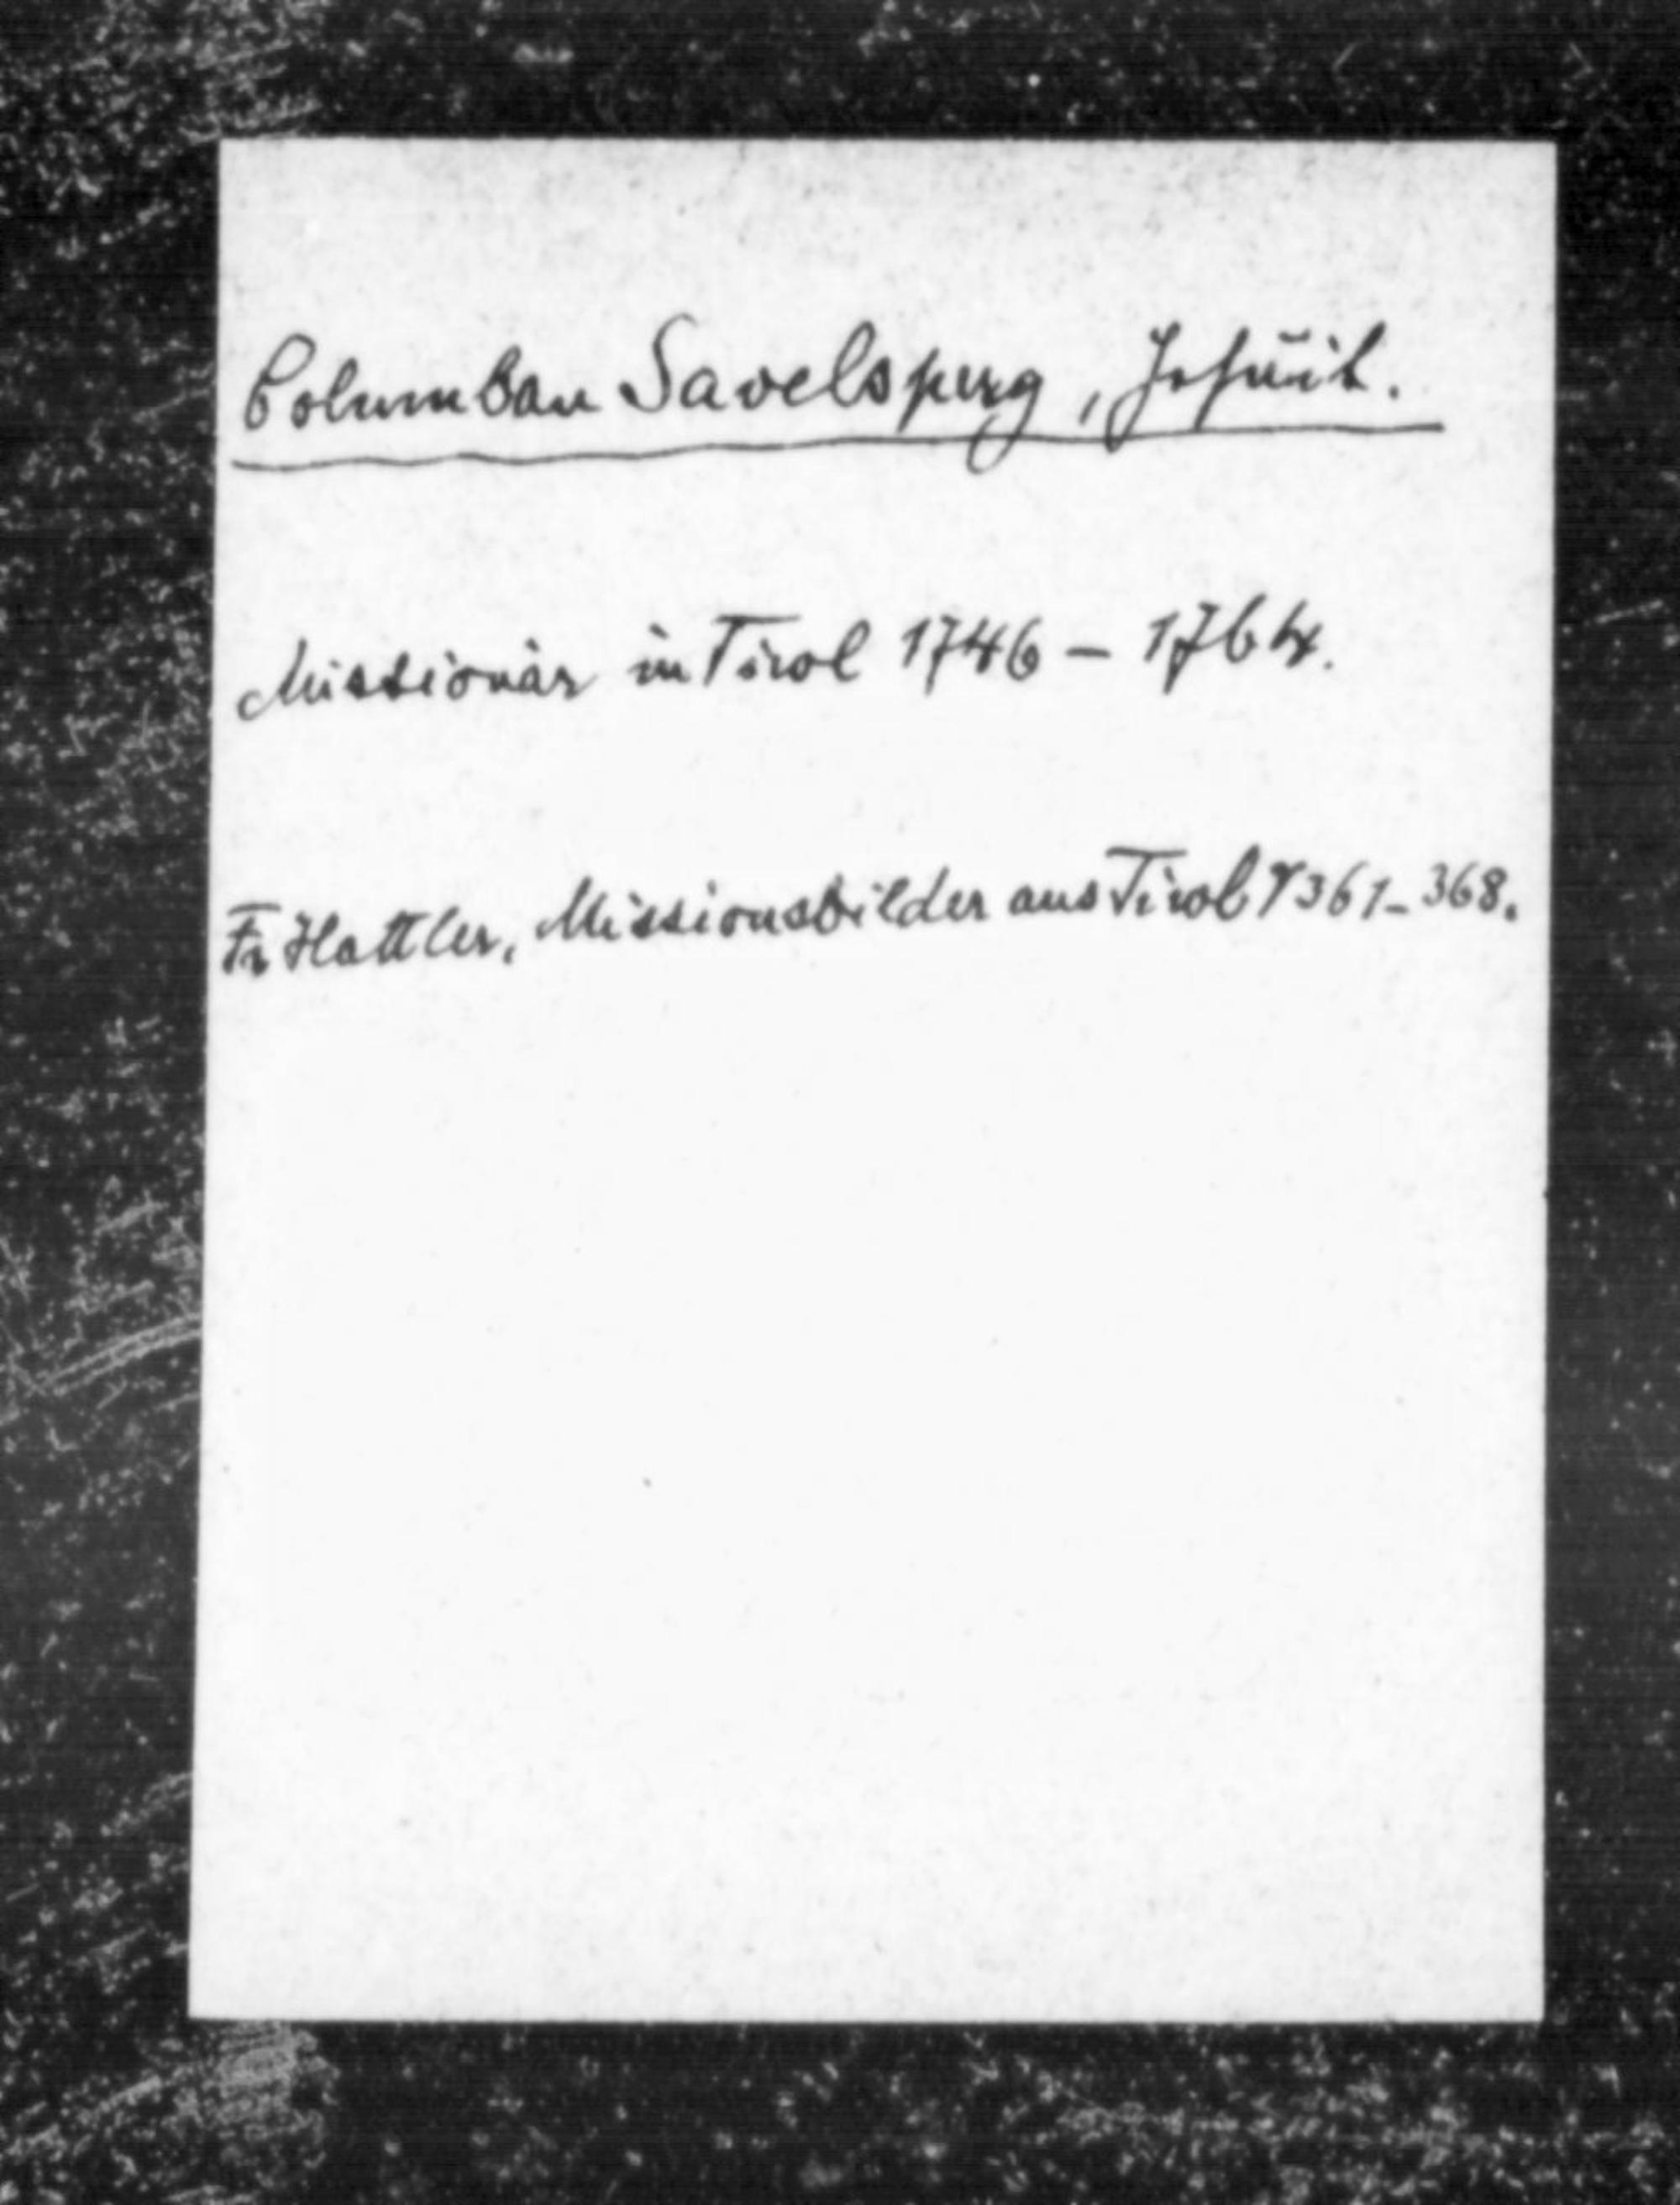 Columban Savelsperg, Jesuit.
Missionär in Tirol 1746 – 1764.
Fr Hattler, Missionsbilder aus Tirol 361–368.